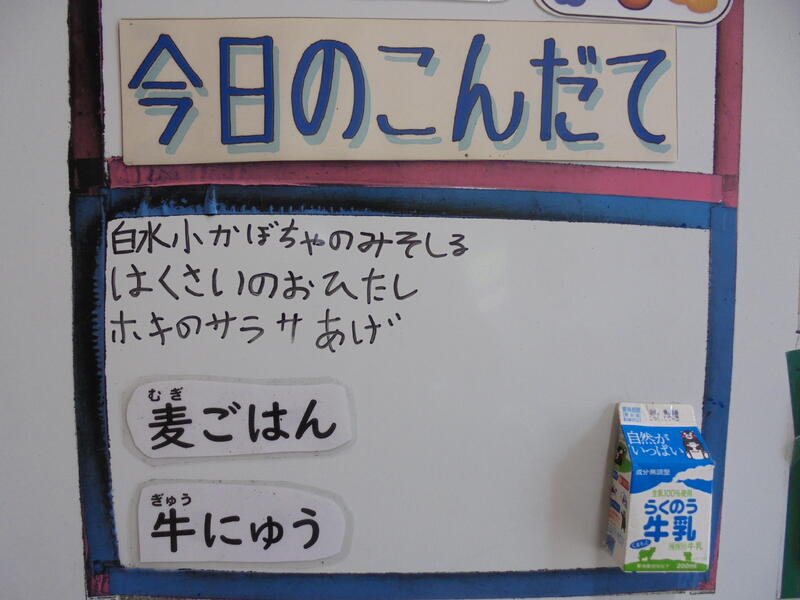 今日のこんだて
白水小かぼちゃのみそしる
はくさいのおひたし
ホキのサラサあげ
むぎ
麦ごはん
ぎゅう
牛にゅう
自然が
いっぱい
成分無調整
生乳100%使用
らくのう
牛乳
200ml